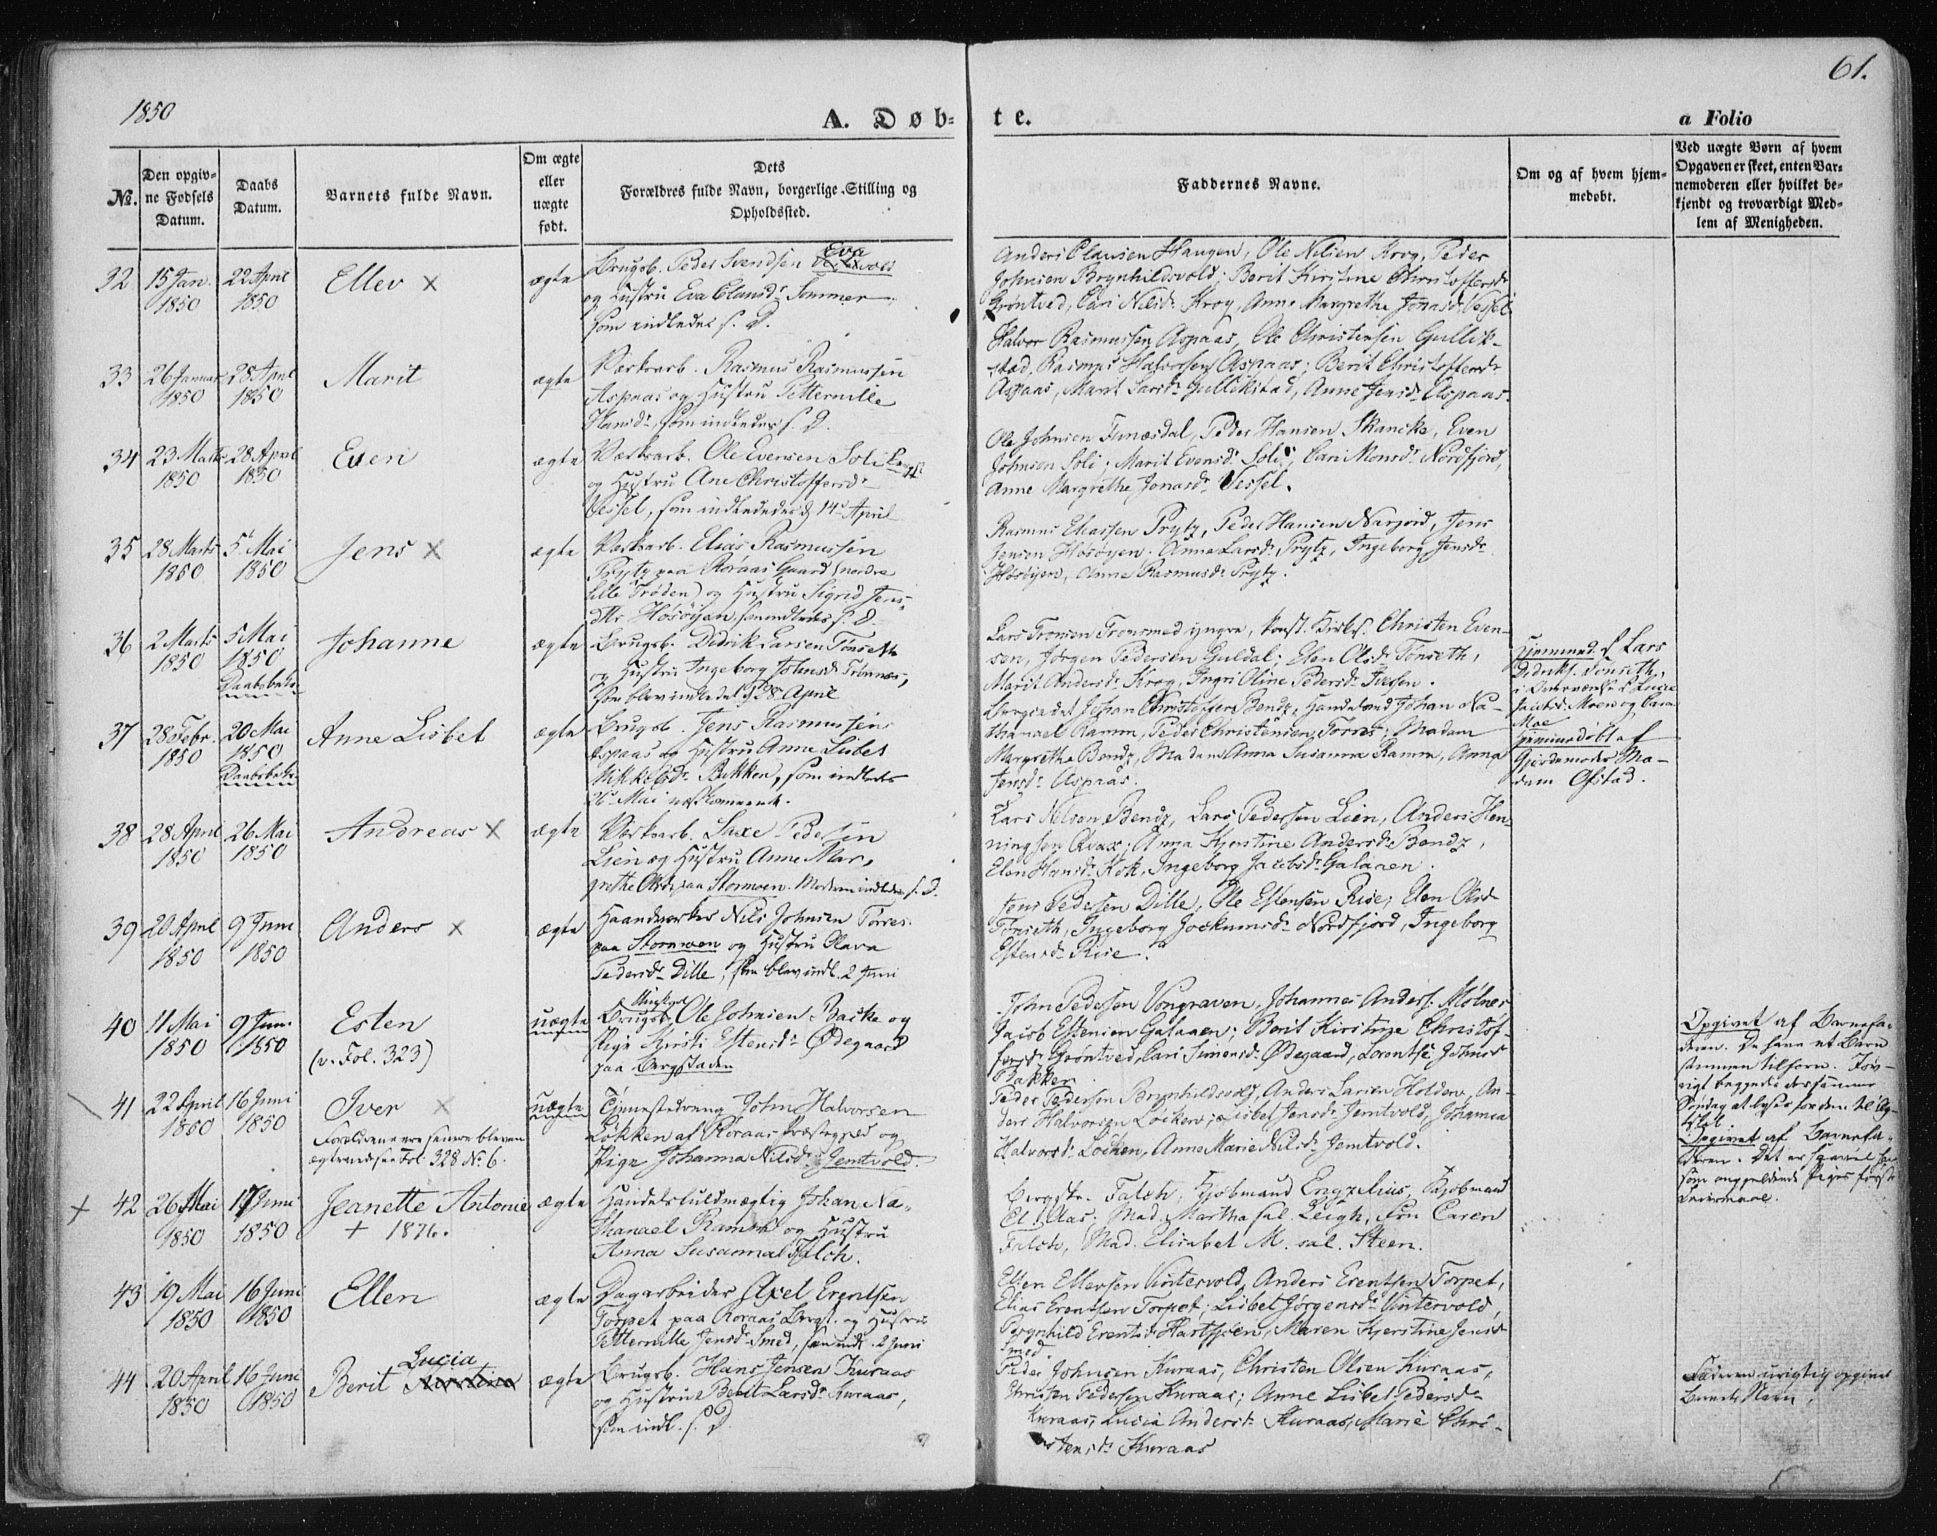 1850
61.
A. Døb-
te.
a Folio
No.
Den opgiv-
ne Fødsels
Datum.
Daabs
Datum.
Barnets fulde Navn.
Om ægte
eller
uægte
født.
Dets
Forældres fulde Navn, borgerlige Stilling og
Opholdssted.
Faddernes Navne.
Om og af hvem hjem-
medøbt.
Ved uægte Børn af hvem
Opgaven er skeet, enten Bar-
nemoderen eller hvilket be-
kjendt og troværdigt Med-
lem af Menigheden.
32
15 Jan.
1850
22 April
1850
Ellev x
ægte
Brugsb. Peder Svendsen Eva
og Hustru Eva Clausdr Sommer
som indledes s. D.
Anders Clausen Haugen, Ole Nilsen Krog, Peder
Johnsen Brynhildsvold; Berit Kirstine Christoffersdr
Grøntved, Cari Nilsdr Krog, Anne Margrethe Jonasdr Vessel
33
26 Januar
1850
28 April
1850
Marit
ægte
Værksarb. Rasmus Rasmussen
Aspaas og Hustru Petternille
Hansdr, som indledes s. D.
Halvor Rasmussen Aspaas, Ole Christensen Gullik-
stad, Rasmus Halvorsen Aspaas; Berit Christoffersdr
Aspaas, Marit Larsdr Gullikstad, Anne Jensdr Aspaas.
34
23 Marts
1850
28 April
1850
Even
ægte
Værksarb. Ole Evensen Soli
og Hustru Ane Christoffersdr
Vessel, som indlededes d 14 April
Ole Johnsen Funæsdal, Peder Hansen Skancke, Even
Johnsen Soli; Marit Evensdr Soli, Cari Monsdr Nordfjord,
Anne Margrethe Jonasdr Vessel.
35
28 Marts
1850
5t Mai
1850
Jens x
ægte
Værksarb. Elias Rasmussen
Prytz paa Røraas Gaard (nordre
lille Trøden) og Hustru Sigrid Jens-
dtr Høsøyen, som indledes s. D.
Rasmus Eliassen Prytz, Peder Hansen Narjord, Jens
Jensen Høsøyen. Anna Larsdr Prytz, Ingeborg Jensdr
Høsøyen, Anne Rasmusdr Prytz.
36
2 Marts
1850
5 Mai
1850
Daabsbekr.
Johanne
ægte
Brugsb. Didrik Larsen Tønseth
og Hustru Ingeborg Johnsdr Tronæs,
som blev indledet d 28 April
Lars Tronsen Tronsmed yngre, Christen Even-
sen, Jørgen Pedersen Guldal; Elen Olsdr Tønseth,
Marit Andersdr Krog, Ingri Oline Pedersdr Ivessen.
Hjemmed. af Lars
Didriks. Tønseth,
i Overværelse af
Jacobsd. Moen og
Moe
37
28 Febr.
1850
20 Mai
1850
Daabsbekr.
Anne Lisbet
ægte
Brugsb. Jens Rasmussen
Aspaas og Hustru Anne Lisbet
Mikkelsdr Bakken, som indledes
26 Mai næstkommende.
Johan Christoffer Bendz, Handelsmd Johan Na-
thanael Ramm, Peder Christensen Torres; Madam
Margrethe Bendz, Madam Anna Susanna Ramm, Anna
Jensdr Aspaas.
Hjemmedøbt af
Gjordemoder Ma-
dam Ofstad.
38
28 April
1850
26 Mai
1850
Andreas x
ægte
Værksarb. Saxe Pedersen
Lien og Hustru Anne Mar-
grethe Olsdr paa Stormoen. Moderen indledes s. D.
Lars Nilsen Bendz, Lars Pedersen Lien, Anders Hen-
ningsen Kvax; Anna Kjerstine Andersdr Bendz,
Elen Hansdr Kok, Ingeborg Jacobsdr Galaaen.
39
20 April
1850
9 Juni
1850
Anders x
ægte
Haandværker Nils Johnsen Torres
paa Stormoen og Hustru Olava
Pedersdr Dille, som blev indl. 2 Juni
Jens Pedersen Dille, Ole Estensen Rise; Elen Olsdr
Tønseth, Ingeborg Jockumsdr Nordfjord, Ingeborg
Estensdr Rise.
40
11 Mai
1850
9 Juni
1850
Esten
(v. Fol. 323)
uægte
Ungkarl
Brugsb. Ole Johnsen Bakke og
Pige Kirsti Estensdr Ødegaard
paa Bergstaden
John Pedersen Vongraven, Johannes Anders. Molnes
Jacob Estensen Galaaen; Berit Kirstine Christof-
fersdr Grøntved, Cari Simensdr Ødegaard, Lorentse Johnsdr
Bakken
Opgivet af Barnefa-
deren. De have et Barn
sammen tilforn.
41
22 April
1850
16 Juni
1850
Iver x
Forældrene ere senere blevne
ægteviede see Fol. 328 No 6.
uægte
Tjenestedreng John Halvorsen
Løkken af Røraas Præstegjeld og
Pige Johanna Nilsdr Jemtvold.
Peder Pedersen Brynhildsvold, Anders Larsen Holden, An-
ders Halvorsen Løcken; Lisbet Jensdr Jemtvold, Johanna
Halvorsdr Løcken, Anne Marie Nilsdr Jemtvold.
Opgivet af Barnefa-
deren.
Leiermaal.
+ 42
26 Mai
1850
17 Juni
1850
Jeanette Antonie
+ 1876.
ægte
Handelsfuldmægtig Johan Na-
thanael Ramm og Hustru
Anna Susanna Falch.
Bergskr. Falch, Kjøbmand Engzelius, Kjøbmand
El. Aas; Mad. Martha sal. Leigh, Frøk Caren
Falch, Mad. Elisabet M. sal. Steen.
43
19 Mai
1850
16 Juni
1850
Ellen
ægte
Dagarbeider Axel Erentsen
Torpet paa Røraas Bergst. og Hustru
Petternille Jensdr Smed, som indl. 2 Juni
Ellen Ellevsen Vintervold, Anders Erentsen Torpet,
Elias Erentsen Torpet; Lisbet Jørgensdr Vintervold,
Brynhild Erentsdr Hartsjøen, Maren Kjerstine Jensdr
Smed
44
20 April
1850
16 Juni
1850
Lucia
Berit Karstine
ægte
Brugsb. Hans Jensen Kuraas
og Hustru Berit Larsdr Kuraas,
som indl. s. D.
Peder Johnsen Kuraas, Christen Olsen Kuraas,
Christen Pedersen Kuraas; Anne Lisbet Pedersdr
Kuraas, Lucia Andersdr Kuraas, Marie Chri-
stensdr Kuraas
Faderen urigtig opgivet
Barnets Navn.